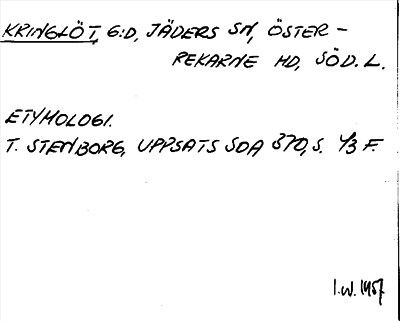 KRINGLÖT, G:D, JÄDERS SN, ÖSTER-
REKARNE HD, SÖD. L.
ETYMOLOGI.
T. STENBORG, UPPSATS SDA 370, S. 43 F.
I.W. 1957